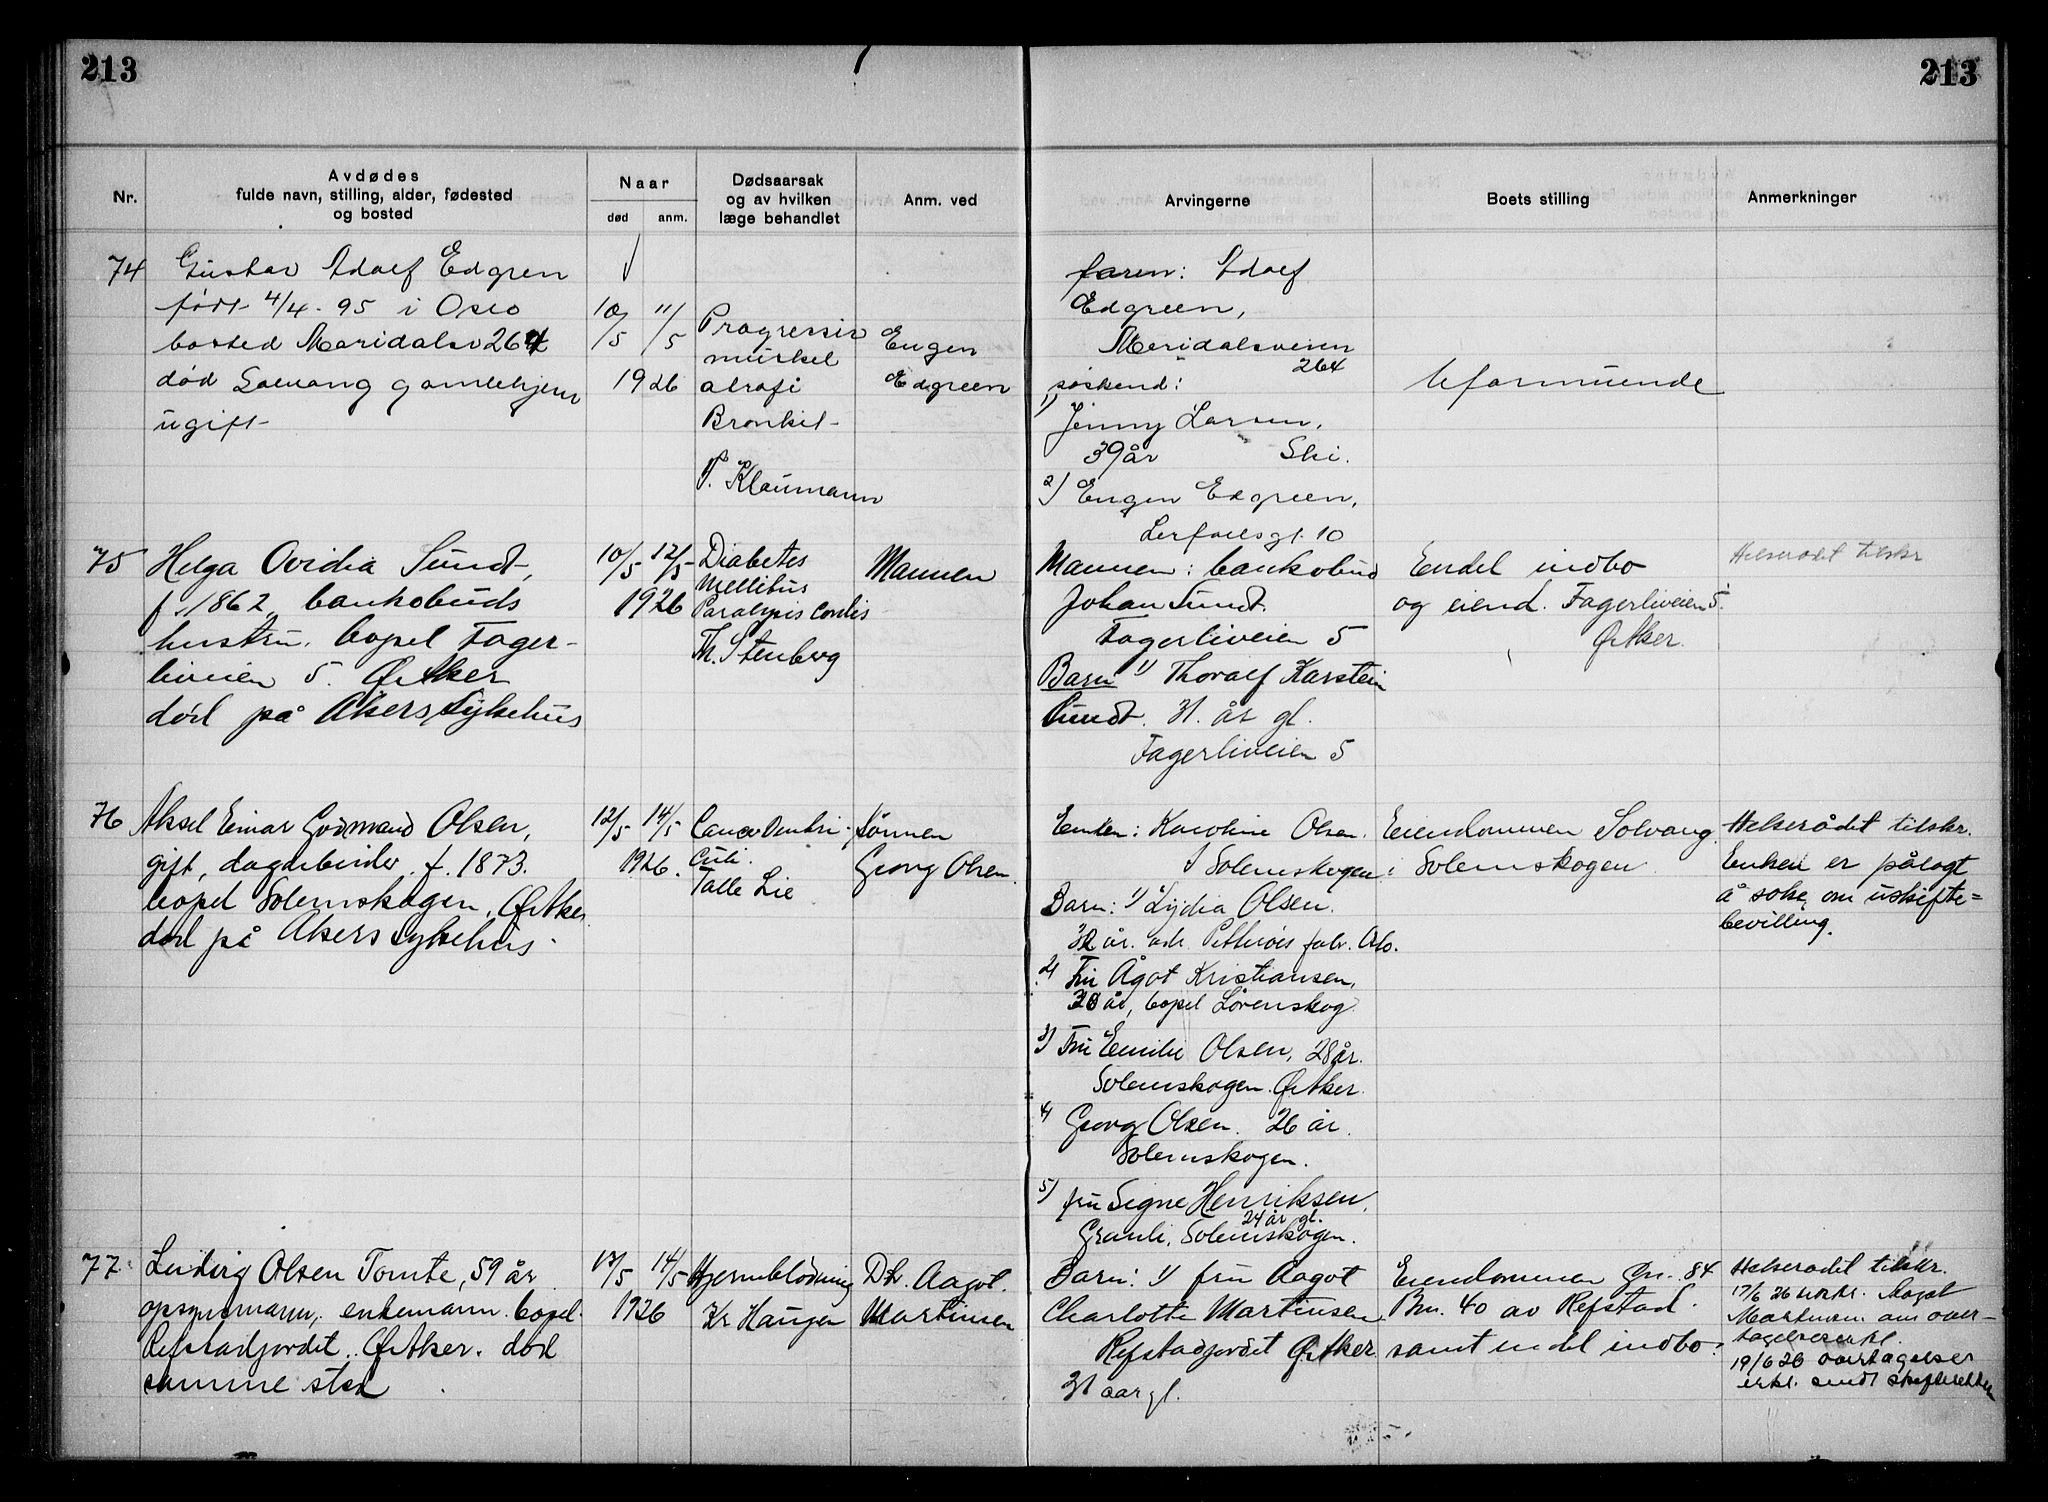 213
213
Nr.
Avdødes
fulde navn, stilling, alder, fødested
og bosted
Naar
død
anm.
Dødsaarsak
og av hvilken
læge behandlet
Anm. ved
Arvingerne
Boets stilling
Anmerkninger
74
Gustav Adolf Edgren
født 4/4-95 i Oslo
bosted Maridalsv 264
død Solvang gamlehjem
ugift
10/5 11/5
1926
Progressiv
muskel
atrofi
Bronkit
P. Klaumann
Eugen
Edgreen
faren: Adolf
Edgreen,
Meridalsveien
264
søskend:
1) Jenny Larsen,
39 år Ski.
2) Eugen Edgreen,
gt. 10
Uformuende
75
Helga Ovidia Sundt,
f. 1862, bankobuds
hustru. bopel Fager-
liveien 5. Ø. Aker
død på Akers Sykehus
10/5 12/5
1926
Diabetes
Mellitus
Paralysis Cordis
Th. Stenberg
Mannen
Mannen: bankobud
Johan Sundt.
Fagerliveien 5
Barn 1) Thoralf Karstein
Sundt. 31. år gl.
Fagerliveien 5
Endel indbo
og eiend. Fagerliveien 5.
Ø. Aker.
Helserådet tilskr
76
Aksel Einar Godmand Olsen,
gift, f. 1873.
bopel Solemskogen, Ø. Aker
død på Akers Sykehus.
12/5 14/5
1926.
Cancer Ventri-
culi.
Talle Lie
Sønnen
Georg Olsen.
Enken: Karoline Olsen.
Solemskogen
Barn: 1) Lydia Olsen.
32 år. adr. fabr. Oslo.
2) Fru Ågot Kristiansen,
30 år, bopel Lørenskog.
3) Fru Emilie Olsen, 28 år.
Solemskogen. Ø. Aker.
4) Georg Olsen. 26 år.
Solemskogen.
5) fru Signe Henriksen,
24 år gl.
Granli, Solemskogen.
Eiendommen Solvang
i Solemskogen
Helserådet tilskr.
Enken er pålagt
å søke om uskifte=
bevilling.
77
Ludvig Olsen Tomte, 59 år
opsynsmann, enkemann. bopel.
Refstadjordet. Ø. Aker. død
samme sted
13/5 14/5
1926
Hjerneblødning
Kr Haugen
Dtr. Aagot
Martinsen
Barn: 1) fru Aagot
Charlotte Martinsen
Refstadjordet Ø. Aker.
31 aar gl.
Eiendommen Gn. 84
Bn. 40 av Refstad.
samt endel indbo.
Helserådet tilskr.
17/6 26 Aagot
Martinsen om over-
tagelseserkl.
19/6 26 overtagelses
erkl. sendt skifteretten